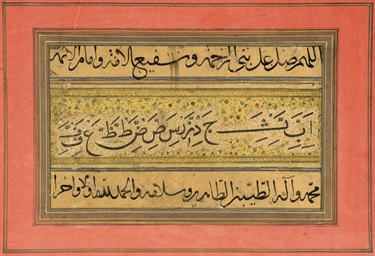 اللهم صل علی نبی الرحمه و شفیع الامه و امام الائمه
ا ب ت ث ج د ر س ص ض ط ظ ع ف
محمد و آله الطیبین الطاهرین و سلامه والحمد لله اولا و اخرا